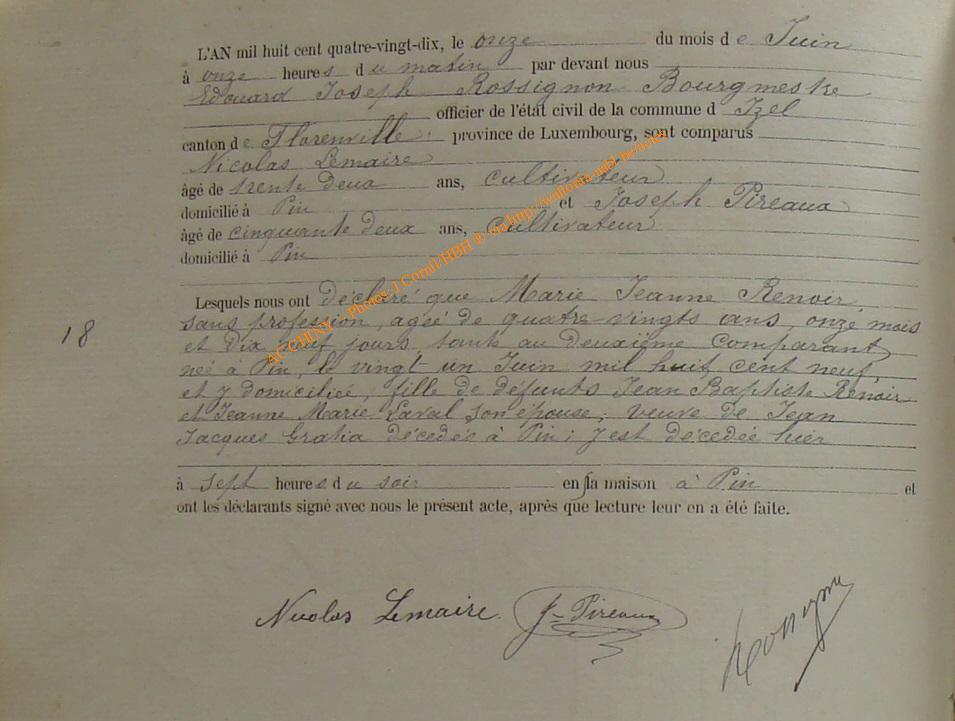 L'AN mil huit cent quatre-vingt-dix, le onze du mois de Juin
à onze heures du matin par devant nous
Edouard Joseph Rossignon Bourgmestre
officier de l'état civil de la commune d Izel
canton de Florenville, province de Luxembourg, sont comparus
Nicolas Lemaire
âgé de trente deux ans, cultivateur
domicilié à Pin et Joseph Pireaux
âgé de cinquante deux ans, cultivateur
domicilié à Pin
Lesquels nous ont déclaré que Marie Jeanne Renoir
sans profession, agée de quatre-vingts ans, onze mois
18
et dix neuf jours, tante au deuxième comparant
née à Pin, le vingt un Juin mil huit cent neuf
et y domiciliée, fille de défunts Jean Baptiste Renoir
et Jeanne Marie Laval son épouse; veuve de Jean
Jacques Gratia décédés à Pin; y est décédée hier
à sept heures du soir en sa maison à Pin et
ont les déclarants signé avec nous le présent acte, après que lecture leur en a été faite.
Nicolas Lemaire J-Pireaux
Rossignon
AC CHINY - Photos J Cornil/HBH ® via http://wallonia.mdd.be/actes